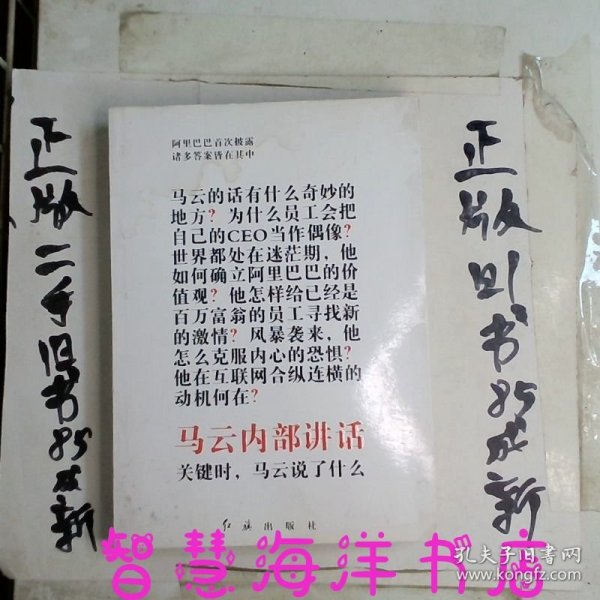 阿里巴巴首次披露
诸多答案皆在其中
马云的话有什么奇妙的
地方？为什么员工会把
自己的CEO当作偶像？
世界都处在迷茫期，他
如何确立阿里巴巴的价
值观？他怎样给已经是
百万富翁的员工寻找新
的激情？风暴袭来，他
怎么克服内心的恐惧？
他在互联网合纵连横的
动机何在？
马云内部讲话
关键时，马云说了什么
红旗出版社
正版二手旧书85成新
正版旧书85成新
智慧海洋书店
孔夫子旧书网
www.kongfz.com